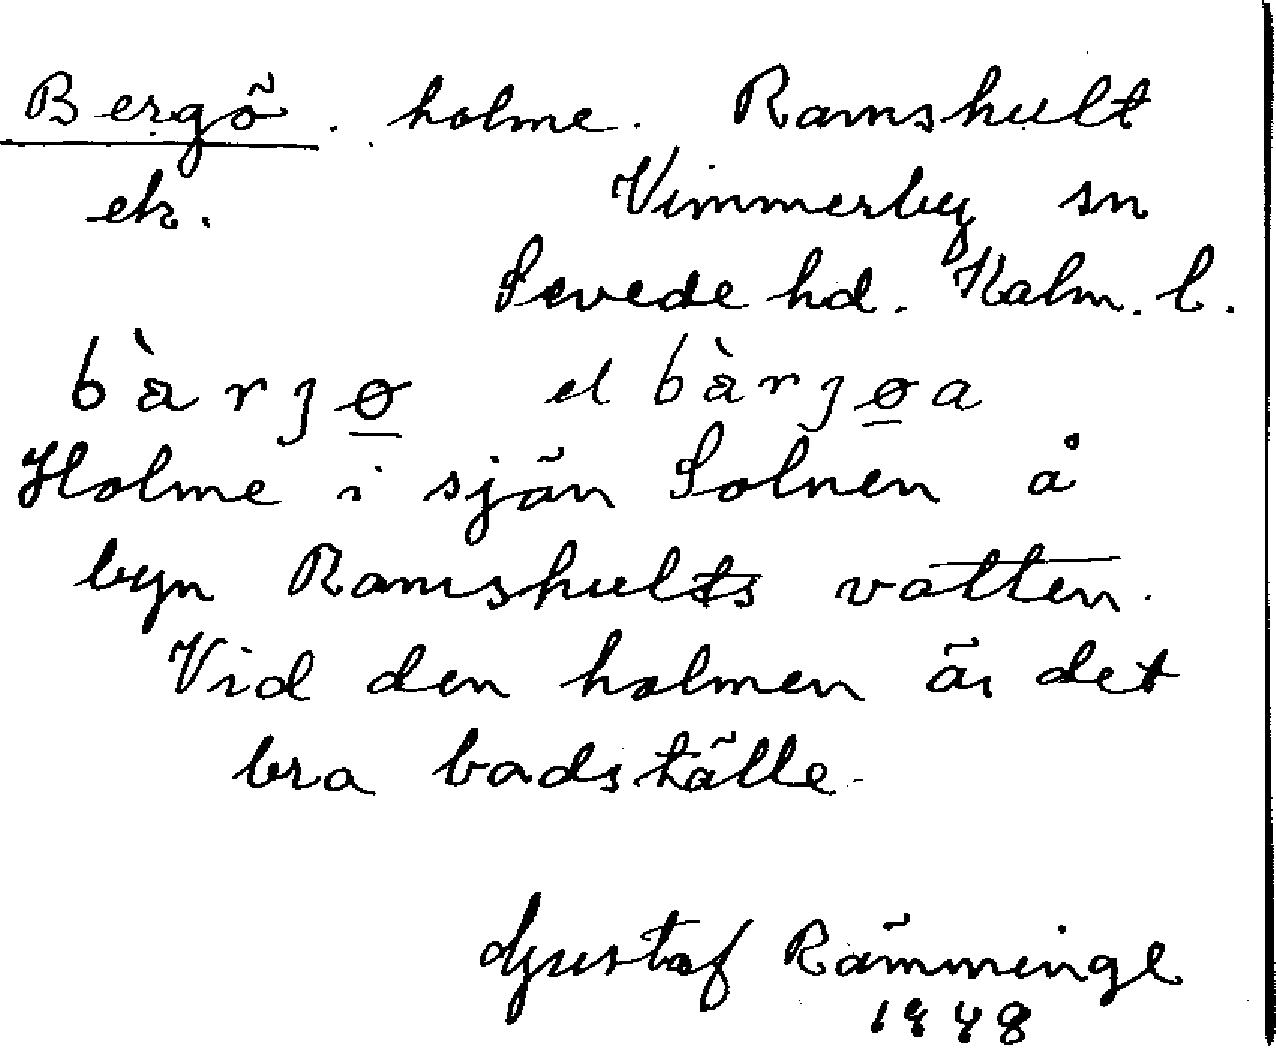 Bergö. holme. Ramshult
ek. Vimmerby sn
Sevede hd. Kalm. l.
bàrjø el bàrjøa
Holme i sjön Solnen å
byn Ramshults vatten.
Vid den holmen är det
bra badställe.
Gustaf Rämminge
1948